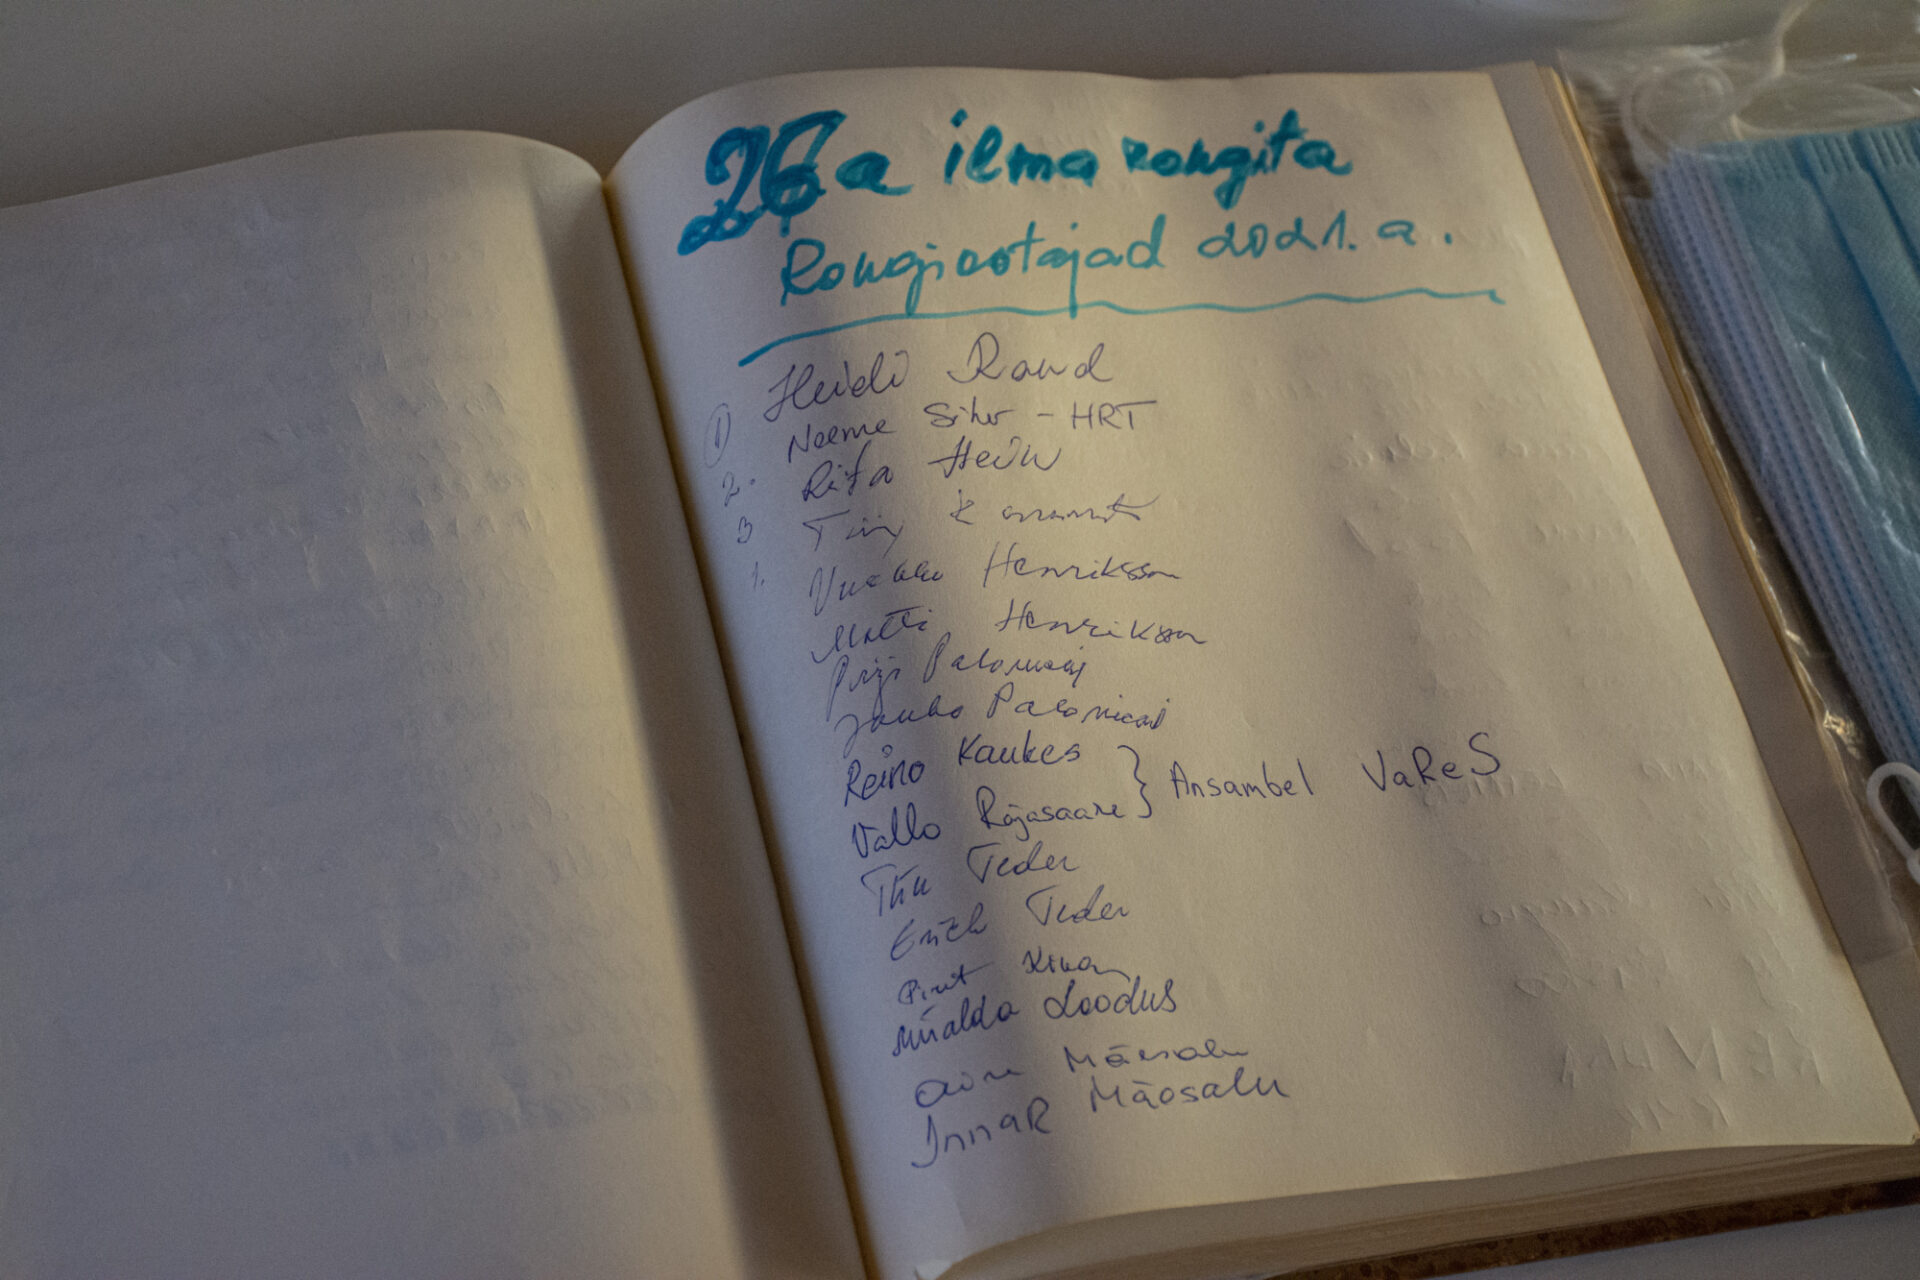 26 a ilma rongita
Rongiootajad 2021. a.
① Heidi Rand
Neeme Sihv - HRT
2. Rita Hein
3 Tiiy
1. Henriksson
Matti Henriksson
Pirjo Palomäki
Jouko Palomäki
Reino Kaukes
Vallo Rajasaare } Ansambel VaReS
Tiiu Teder
Erich Teder
Piret
Miralda Loodus
Mäesalu
Innar Mäesalu